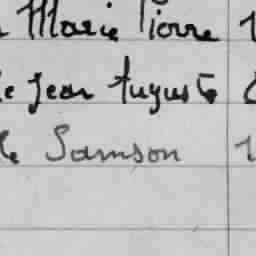 Marie Pierre
Jean Auguste
Samson